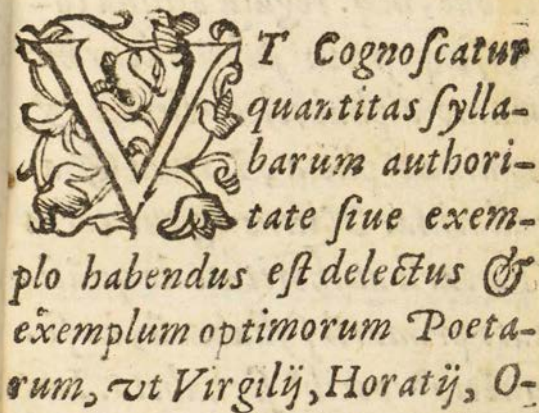 VT Cognoſcatur
quantitas ſylla-
barum authori-
tate ſiue exem-
plo habendus eſt delectus &
exemplum optimorum Poeta-
rum, vt Virgilij, Horatij, O-